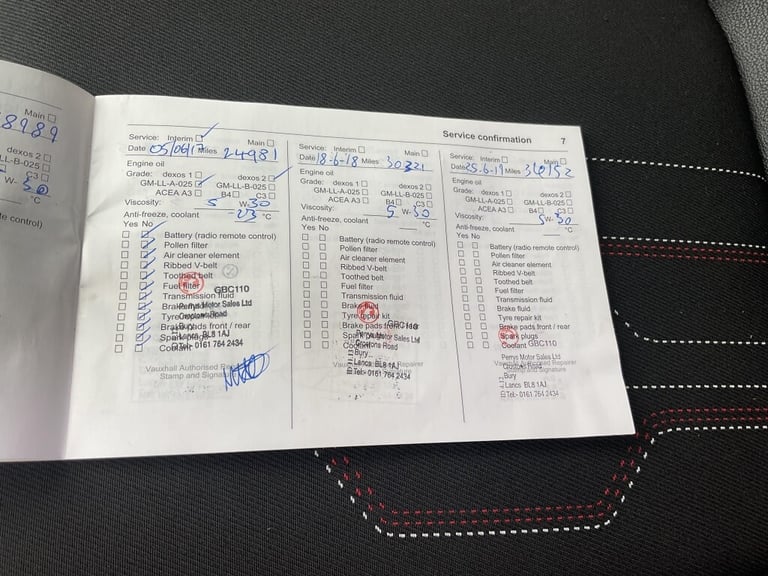 Main
8989
dexos 2
LL-B-025
C3
W- 30
°C
te control)
Service confirmation 7
Service: Interim Main
Date 05/06/17 Miles 24981
Engine oil
Grade: dexos 1 dexos 2
GM-LL-A-025 GM-LL-B-025
ACEA A3 B4 C3
Viscosity: 5 W-30
Anti-freeze, coolant -23 °C
Yes No
Battery (radio remote control)
Pollen filter
Air cleaner element
Ribbed V-belt
Toothed belt
Fuel filter
GBC110
Transmission fluid
Brake fluid
Perrys Motor Sales Ltd
Tyre repair kit
Croptons Road
Brake pads front / rear
Bury
Spark plugs
Lancs. BL8 1AJ
Coolant
Tel:- 0161 764 2434
Vauxhall Authorised Repairer
Stamp and Signature
Service: Interim Main
Date 18-6-18 Miles 30321
Engine oil
Grade: dexos 1 dexos 2
GM-LL-A-025 GM-LL-B-025
ACEA A3 B4 C3
Viscosity: 5 W-30
Anti-freeze, coolant °C
Yes No
Battery (radio remote control)
Pollen filter
Air cleaner element
Ribbed V-belt
Toothed belt
Fuel filter
Transmission fluid
Brake fluid
Tyre repair kit
Brake pads front / rear
GBC110
Spark plugs
Perrys Motor Sales Ltd
Coolant
Croptons Road
Bury
Lancs. BL8 1AJ
Tel:- 0161 764 2434
Service: Interim Main
Date 25-6-19 Miles 34052
Engine oil
Grade: dexos 1 dexos 2
GM-LL-A-025 GM-LL-B-025
ACEA A3 B4 C3
Viscosity: 5 W- 30
Anti-freeze, coolant °C
Yes No
Battery (radio remote control)
Pollen filter
Air cleaner element
Ribbed V-belt
Toothed belt
Fuel filter
Transmission fluid
Brake fluid
Tyre repair kit
Brake pads front / rear
Spark plugs
Coolant GBC110
Perrys Motor Sales Ltd
Croptons Road
Bury
Lancs BL8 1AJ
Tel:- 0161 764 2434